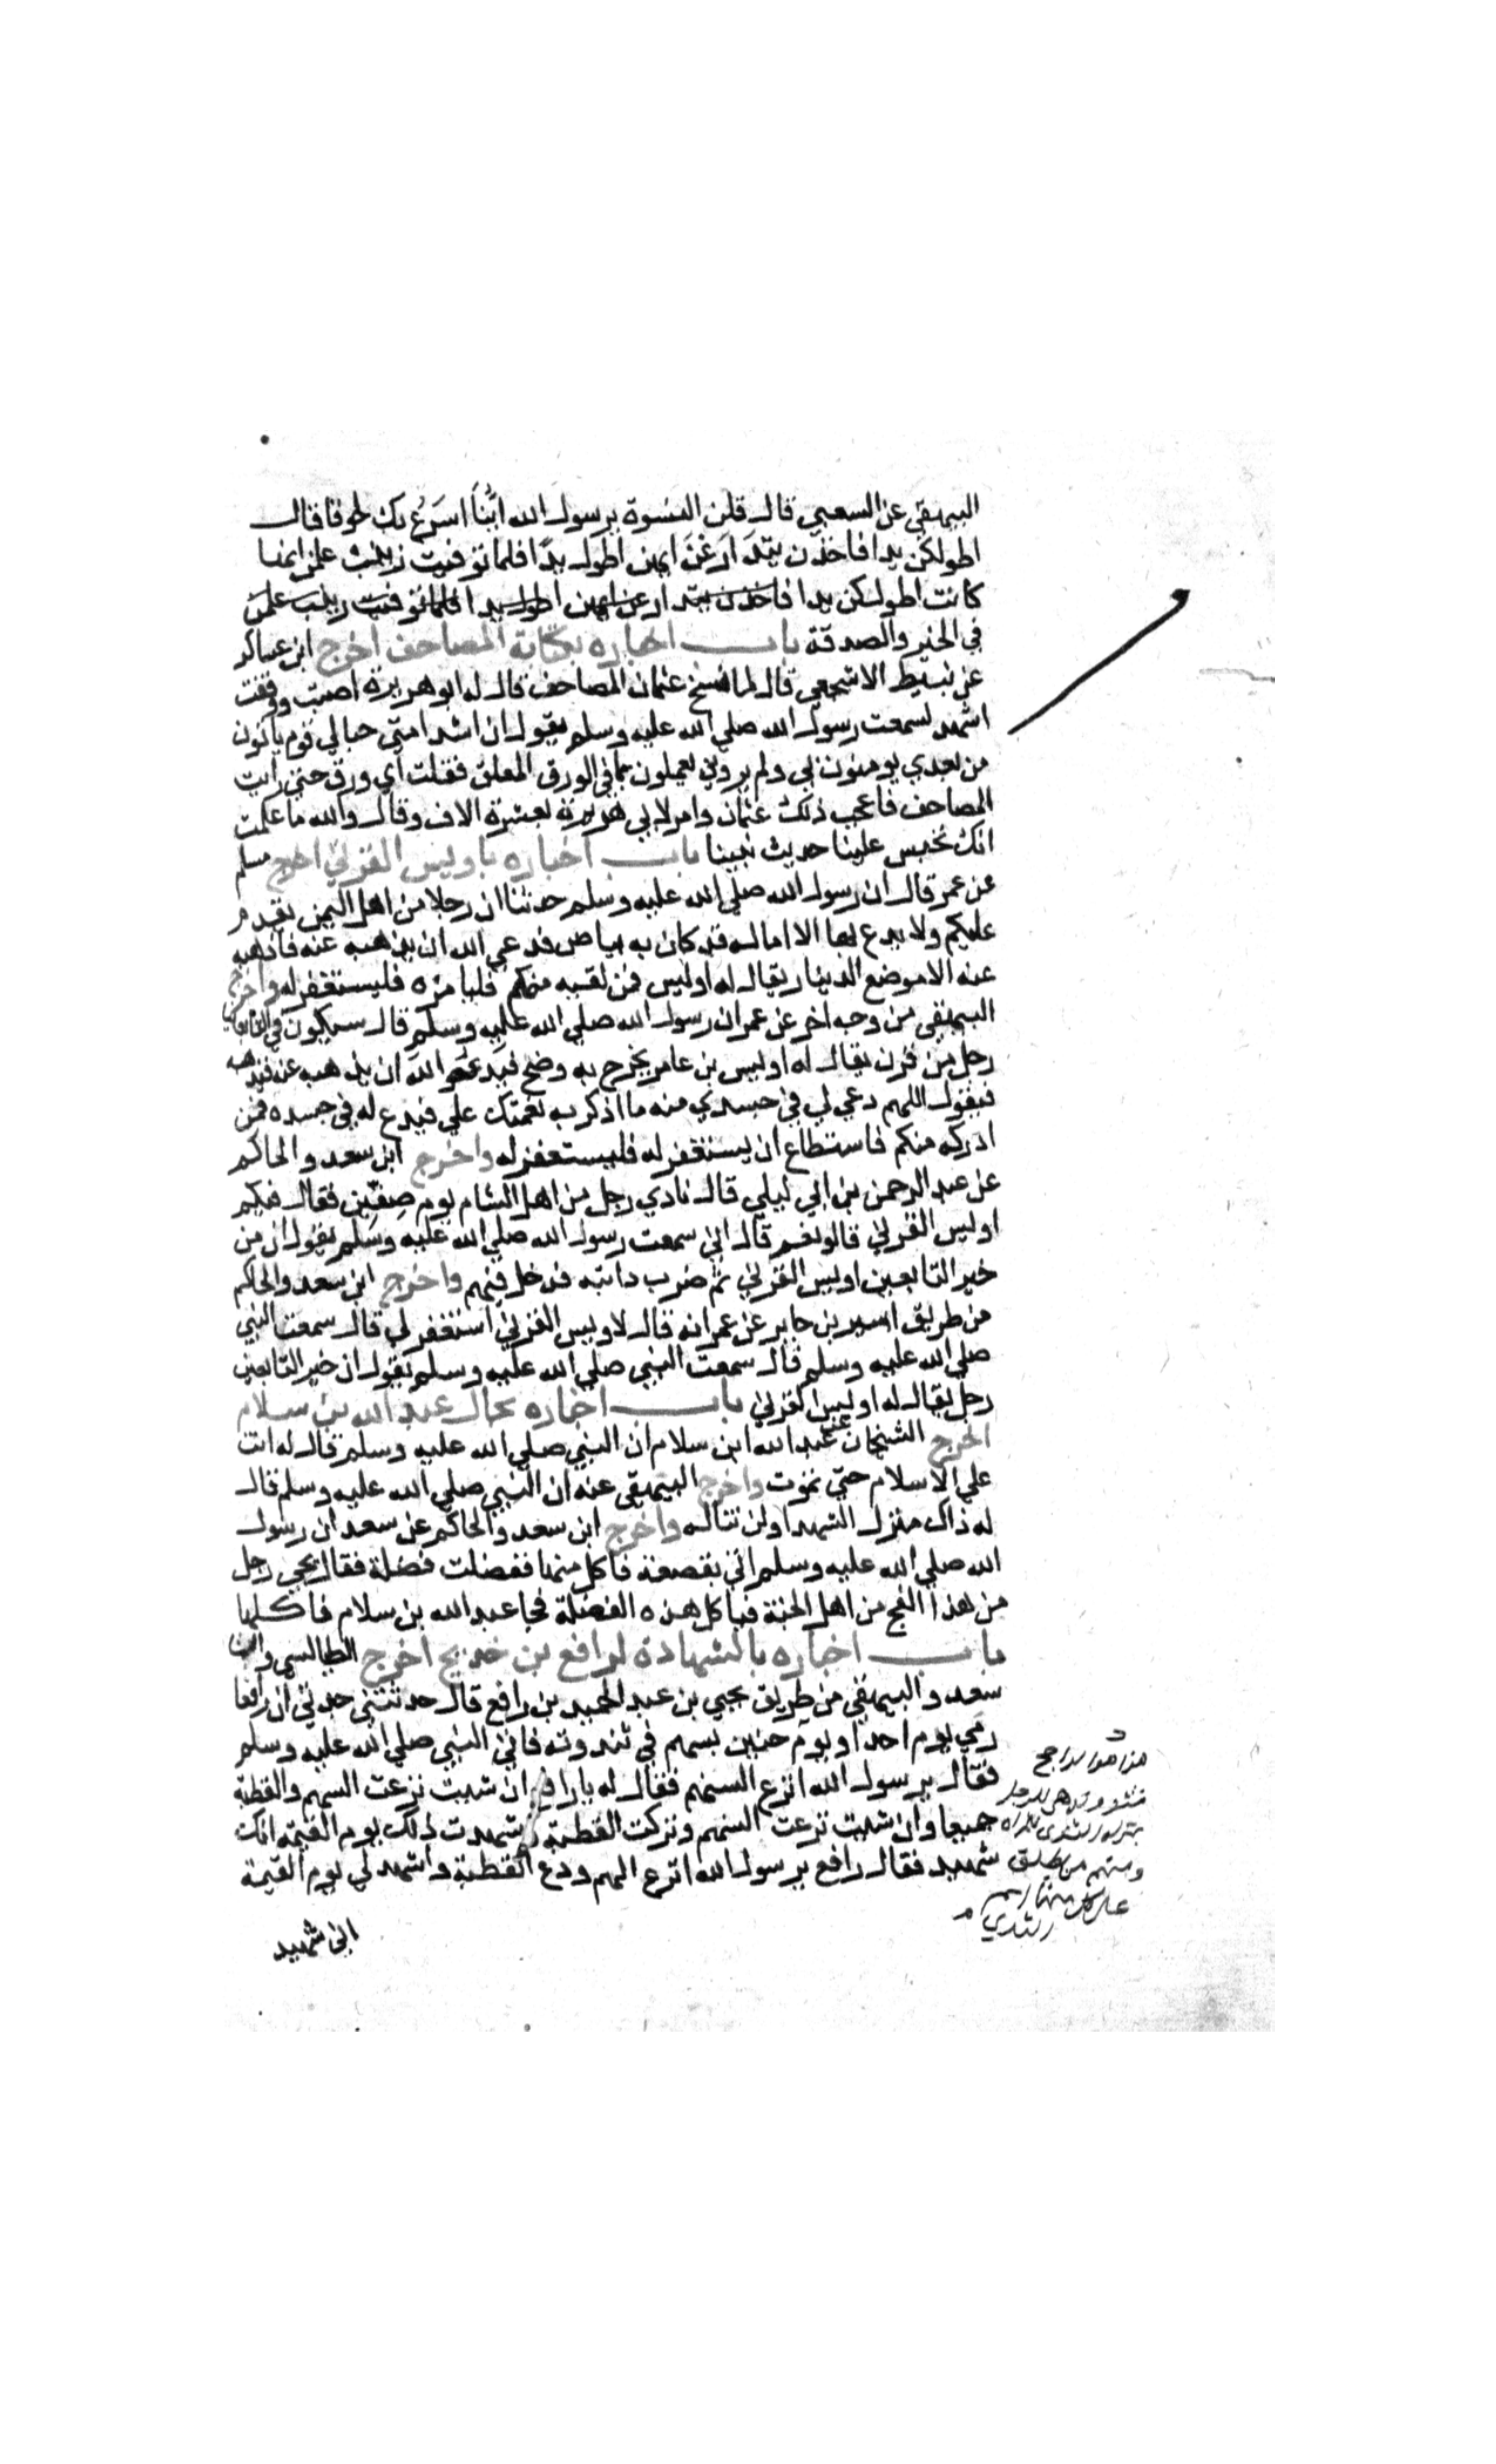 البيهقي عن السعبي قال قلن النسوة يرسول الله ايُّنا اسرعُ بك لحوقا قال
اطولكن يدا فاخذن يتدارعن ايهن اطول يدا فلما توفيت زينب علمن ايمنا
كانت اطولكن يدا فاخذن يتدارعن ايهن اطول يدا فلما توفيت زينب علمن
في الخير والصدقة باب اخباره بكتابة المصاحف اخرج ابن عساكر
عن نبيط الاشجعي قال لما نسخ عثمان المصاحف قال له ابو هريرة اصبت ووفقت
اشهد لسمعت رسول الله صلي الله عليه وسلم يقول ان اشد امتي حبا لي قوم ياتون
من بعدي يومنون بي ولم يروني يعملون بما في الورق المعلق فقلت اي ورق حتي رايت
المصاحف فاعجب ذلك عثمان وامر لابي هريرة بعشرة الاف وقال والله ما علمت
انك تحبس علينا حديث نبينا باب اخباره باويس القرني اخرج مسلم
عن عمر قال ان رسول الله صلي الله عليه وسلم حدثنا ان رجلا من اهل اليمن يقدم
عليكم ولا يدع بها الا اما له قد كان به بياض فدعي الله ان يذهبه عنه فاذهبه
عنه الا موضع الدينار يقال له اوليس فمن لقيه منكم فليامره فليستغفر له واخرج
البيهقي من وجه اخر عن عمر ان رسول الله صلي الله عليه وسلم قال سيكون في التابعين
رجل من قرن يقال له اويس بن عامر يخرج به وضح فيدعو الله ان يذهبه عنه فيذهبه
فيقول اللهم دعي لي في جسدي منه ما اذكر به نعمتك علي فيدع له في جسده فمن
ادركه منكم فاستطاع ان يستغفر له فليستغفر له واخرج ابن سعد والحاكم
عن عبد الرحمن بن ابي ليلي قال نادي رجل من اهل الشام يوم صفين فقال فيكم
اويس القرني قالو نعم قال اني سمعت رسول الله صلي الله عليه وسلم يقول ان من
خير التابعين اويس القرني ثم ضرب دابته فدخل فيهم واخرج ابن سعد والحاكم
من طريق اسير بن جابر عن عمر انه قال لاويس القرني استغفر لي قال سمعت النبي
صلي الله عليه وسلم قال سمعت النبي صلي الله عليه وسلم يقول ان خير التابعين
رجل يقال له اويس القرني باب اخباره بحال عبد الله بن سلام
اخرج الشيخان عن عبد الله ابن سلام ان النبي صلي الله عليه وسلم قال له انت
علي الاسلام حتي تموت واخرج البيهقي عنه ان النبي صلي الله عليه وسلم قال
له ذاك منزل الشهدا ولن تناله واخرج ابن سعد والحاكم عن سعد ان رسول
الله صلي الله عليه وسلم اتي بقصعة فاكل منها ففضلت فضلة فقال يجي رجل
من هذا الفج من اهل الجنة فياكل هذه الفضلة فجا عبد الله بن سلام فاكلها
باب اخباره بالشهادة لرافع بن خديج اخرج الطيالسي وابن
سعد والبيهقي من طريق يحيي بن عبد الحميد بن رافع قال حدثتني جدتي ان رافعا
رمي يوم احد او يوم حنين بسهم في ثندوته فاتي النبي صلي الله عليه وسلم
فقال يرسول الله انزع السهم فقال له يا رافع ان شيت نزعت السهم والقطبة
جميعا وان شيت نزعت السهم وتركت القطبة وشهدت ذلك يوم القيمة انك
شهيد فقال رافع يرسول الله انزع السهم ودع القطبة واشهد لي يوم القيمة
اني شهيد
هذا هو الراجح
ومنهم من يطلق